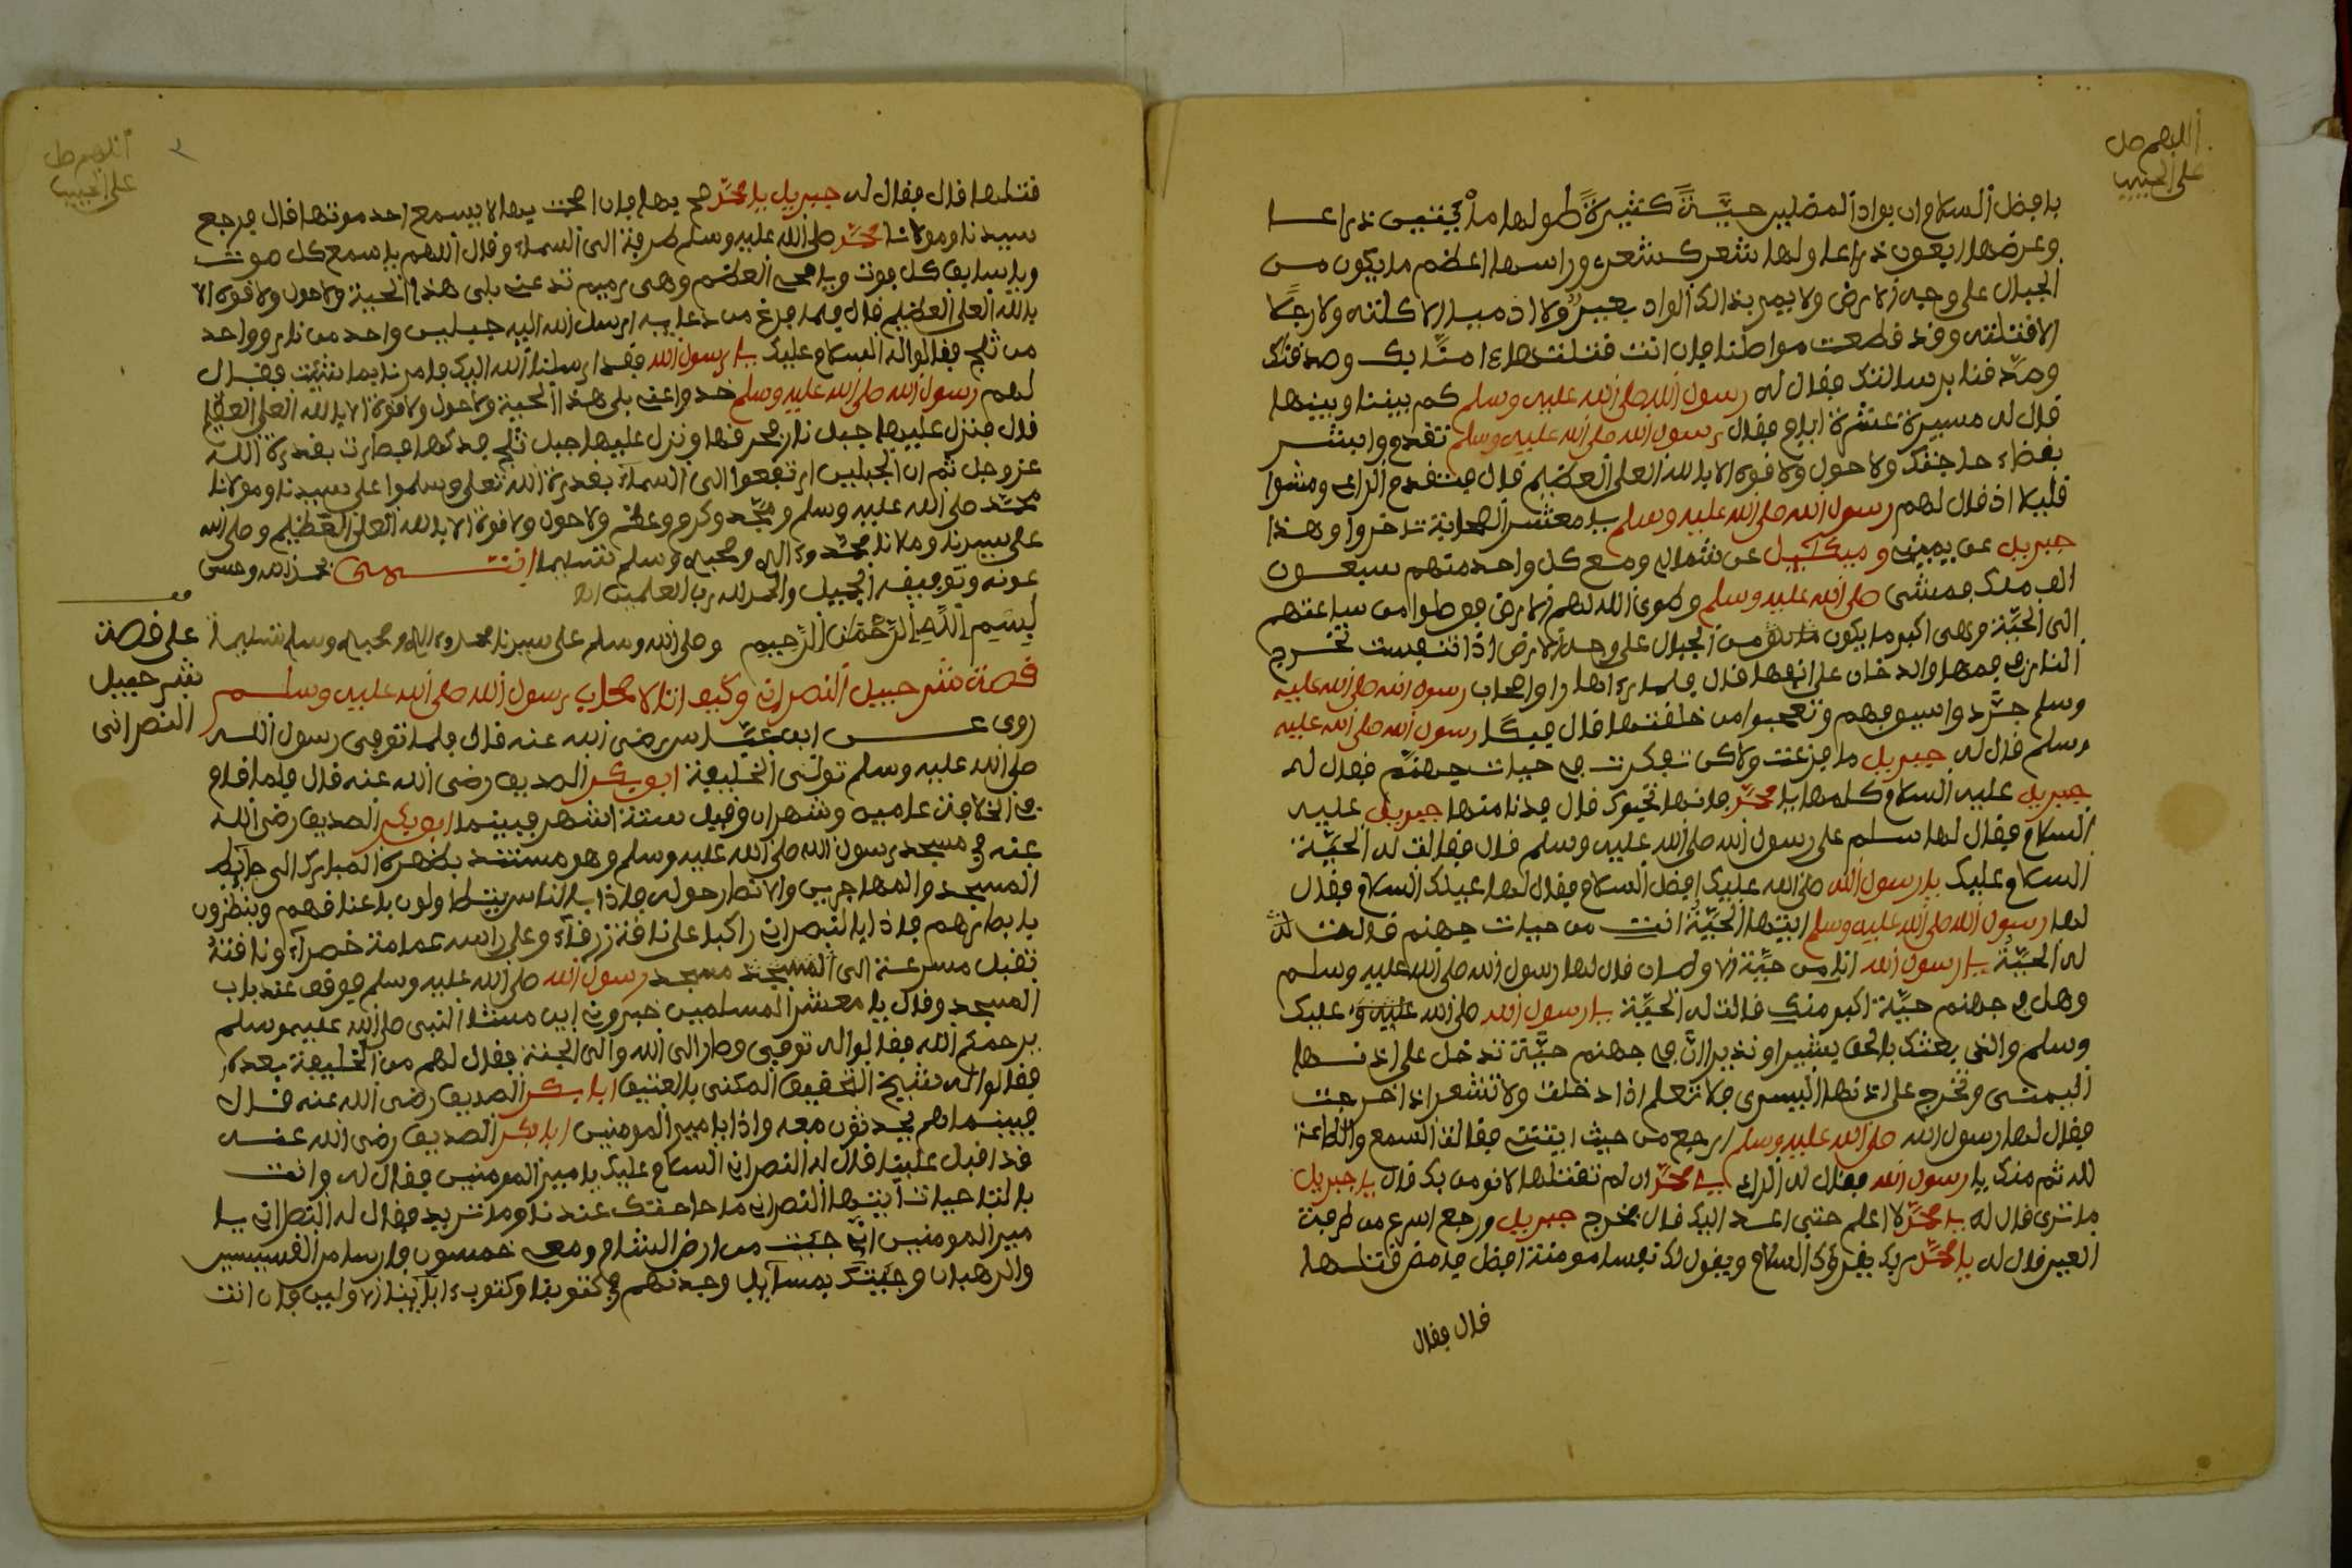 اللهم صل
على الحبيب
بافضل السلام ان بواد المضلين حيّةً كثيرةً طولها مأتيْنيْن ذراعا
وعرضها اربعون ذراعا ولها شعر كشعر وراسها اعظم ما يكون من
الجبال على وجه الارض ولا يمر بذالك الواد بعيرٌ ولا اذميا الا كلته ولا رجلا
الا قتلته وقد قطعت مواطنا فان انت قتلتها ءامنّا بك وصدقناك
وصدّقنا برسالتك فقال له رسول الله صلى الله عليه وسلم كم بيننا وبينها
قال له مسيرة عشرة ايام فقال رسول الله صلى الله عليه وسلم تقدم وابشر
بقضاء حاجتك ولا حول ولا قوة الا بالله العلى العظيم قال فتقدم الراعى ومشوا
قليلا اذ قال لهم رسول الله صلى الله عليه وسلم يا معشر الصحابة تاخروا وهذا
جبريل عن يمينى وميكآئيل عن شمالى ومع كل واحد منهم سبعون
الف ملك فمشى صلى الله عليه وسلم وطوى الله لهم الارض فوصلوا من ساعتهم
الى الحيّة وهى اكبر ما يكون من الجبال على وجه الارض اذا تنفست تخرج
النار من فمها والدخان على انفها قال فلما رءاها راوا اصحاب رسول الله صلى الله عليه
وسلم جرّدوا سيوفهم وتعجبوا من خلقتها قال فبكا رسول الله صلى الله عليه
وسلم قال له جبريل ما فزعت ولاكن تفكرت فى حيات جهنّم فقال له
جبريل عليه السلام كلمها يا محمّد فانها تجيوك قال فدنا منها جبريل عليه
السلام فقال لها سلم على رسول الله صلى الله عليه وسلم قال فقالت له الحيّة
السلام عليك يا رسول الله صلى الله عليك افضل السلام فقال لها عليك السلام فقال
لها رسول الله صلى الله عليه وسلم ايتها الحيّةُ انت من حيات جهنم قالت
له الحيّة يا رسول الله انا من حيّة قال لها رسول الله صلى الله عليه وسلم
وهل فى جهنم حيّة اكبر منك قالت له الحيّة يا رسول الله صلى الله عليك
وسلم والذى بعثك بالحق بشيرا ونذيرا انّ فى جهنم حيّة تدخل على اذنها
اليمنى وتخرج على اذنها اليسرى فلا تعلم اذا دخلت ولا تشعر اذا خرجت
فقال لها رسول الله صلى الله عليه وسلم ارجع من حيث اتيت فقالت السمع والطاعة
لله ثم منك يا رسول الله فقال له الراعى يا محمّد ان لم تقتلها لا نومن بك قال يا جبريل
ما ترى قال له يا محمّد لا اعلم حتى اعد اليك قال فخرج جبريل ورجع اسرع من طرفة
العين قال له يا محمّد ربك يقرءك السلام ويقول لك
قال فقال
اللهم صل
على الحبيب
قتلها قال فقال له جبريل يا محمّد صح بها فان صحت بها لا يسمع احد صوتها قال فرجع
سيدنا ومولانا محمّد صلى الله عليه وسلم طرفة الى السماء وقال اللهم يا سمع كل صوت
ويا سابق كل فوت ويا محى العظم وهى رميم تدعنى بلى هذا الحية ولا حول ولا قوة الا
بالله العلى العظيم قال فلما فرغ من دعايه ارسل الله اليه جبلين واحد من نار وواحد
من ثلج فقالوا له السلام عليك يا رسول الله فقد ارسلنا الله اليك فامرنا بما شئت فقال
لهم رسول الله صلى الله عليه وسلم خدوا عنى بلى هذا الحية ولا حول ولا قوة الا بالله العلى العظيم
قال فنزل عليها جبل نار فحرقها ونزل عليها جبل ثلج فدكها فطارت بقدرة الله
عز وجل ثم ان الجبلين ارتفعوا الى السماء بقدرة الله تعلى وسلموا على سيدنا ومولانا
محمّد صلى الله عليه وسلم ومجّد وكرم وعظّم ولا حول ولا قوة الا بالله العلى العظيم وصلى الله
على سيدنا وملانا محمّد وءاله وصحبه وسلم تسليما انتهى بحمد الله وحسن
عونه وتوفيقه الجميل والحمد لله رب العلمين
بِسْمِ اللهِ الرَّحْمَٰنِ الرَّحِيمِ وصلى الله وسلم على سيدنا محمد وءاله وصحبه وسلم تسليما
على قصة
شرحبيل
النصرانى
قصة شرحبيل النصرانى وكيف اتا لاصحاب رسول الله صلى الله عليه وسلم
روى عن ابن عبّاس رضى الله عنه قال فلما توفى رسول الله
صلى الله عليه وسلم تولّى الخليفة ابو بكر الصديق رضى الله عنه قال فلما قام
فى الخلافة عامين وشهران وقيل ستة اشهر فبينما ابو بكر الصديق رضى الله
عنه فى مسجد رسول الله صلى الله عليه وسلم وهو مستند بظهره المبارك الى حآئط
المسجد والمهاجرين والانصار حوله فاذا بالناس يتطاولون باعناقهم وينظرون
بابصارهم فاذا بالنصرانى راكبا على ناقة زرقآء وعلى راسه عمامة خضرآء وناقتهُ
تقبل مسرعة الى المسجد مسجد رسول الله صلى الله عليه وسلم فوقف عند باب
المسجد وقال يا معشر المسلمين خبرونى اين مشا النبى صلى الله عليه وسلم
يرحمكم الله فقالوا له توفى وصار الى الله والى الجنة فقال لهم من الخليفة بعده
فقالوا له شيخ التحقيق المكنى بالعتيق ابا بكر الصديق رضى الله عنه قال
فبينما هم يحدثون معه واذا بامير المومنين ابا بكر الصديق رضى الله عنه
قد اقبل علينا قال له النصرانى السلام عليك يا مير المومنين فقال له وانت
بالتحيات ايتها النصرانى ما حاجتك عندنا وما تريد فقال له النصرانى يا
مير المومنين انى جئت من ارض الشام ومعى خمسون فارسا من القسيسين
والرهبان وجئتك بمسآيل وجدتهم فى كتوبنا وكتوب ءابآئنا الاولين فان انت